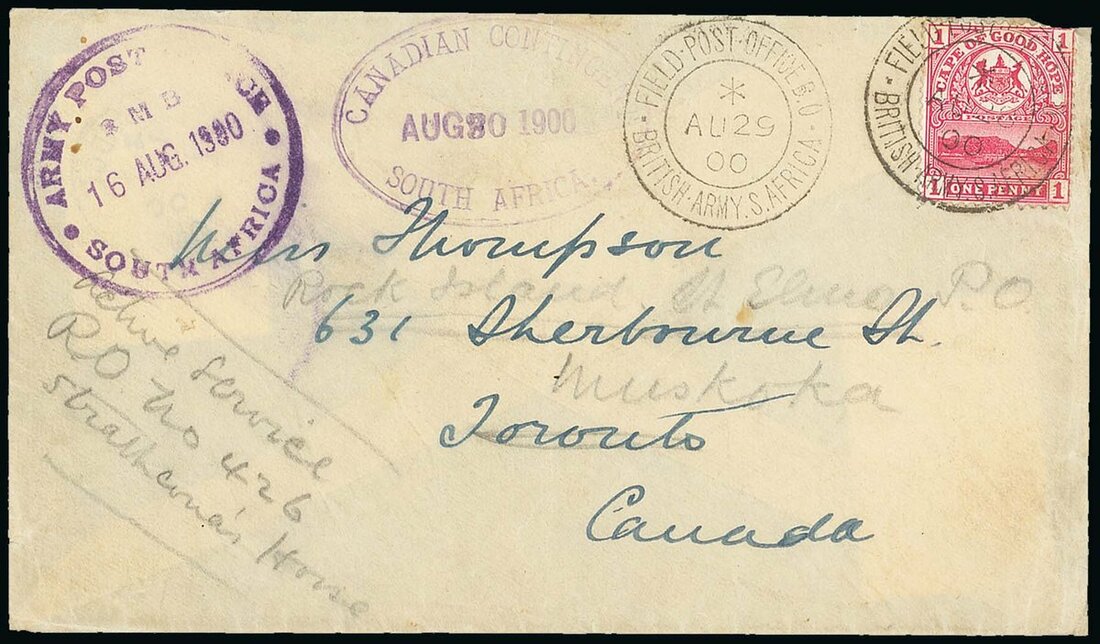 ARMY POST
R M B
16 AUG. 1900
SOUTH AFRICA
CANADIAN
AUG 30 1900
SOUTH AFRICA
FIELD·POST·OFFICE B.O
AU 29
00
BRITISH·ARMY.S.AFRICA
FIELD
00
BRITISH
1 1
CAPE OF GOOD HOPE
POSTAGE
1 ONE PENNY 1
Miss Thompson
Rock Island, St. Elmo P.O.
631 Sherbourne St.
Muskoka
Toronto
Canada
Active Service
R.O. No 426
Strathcona's Horse